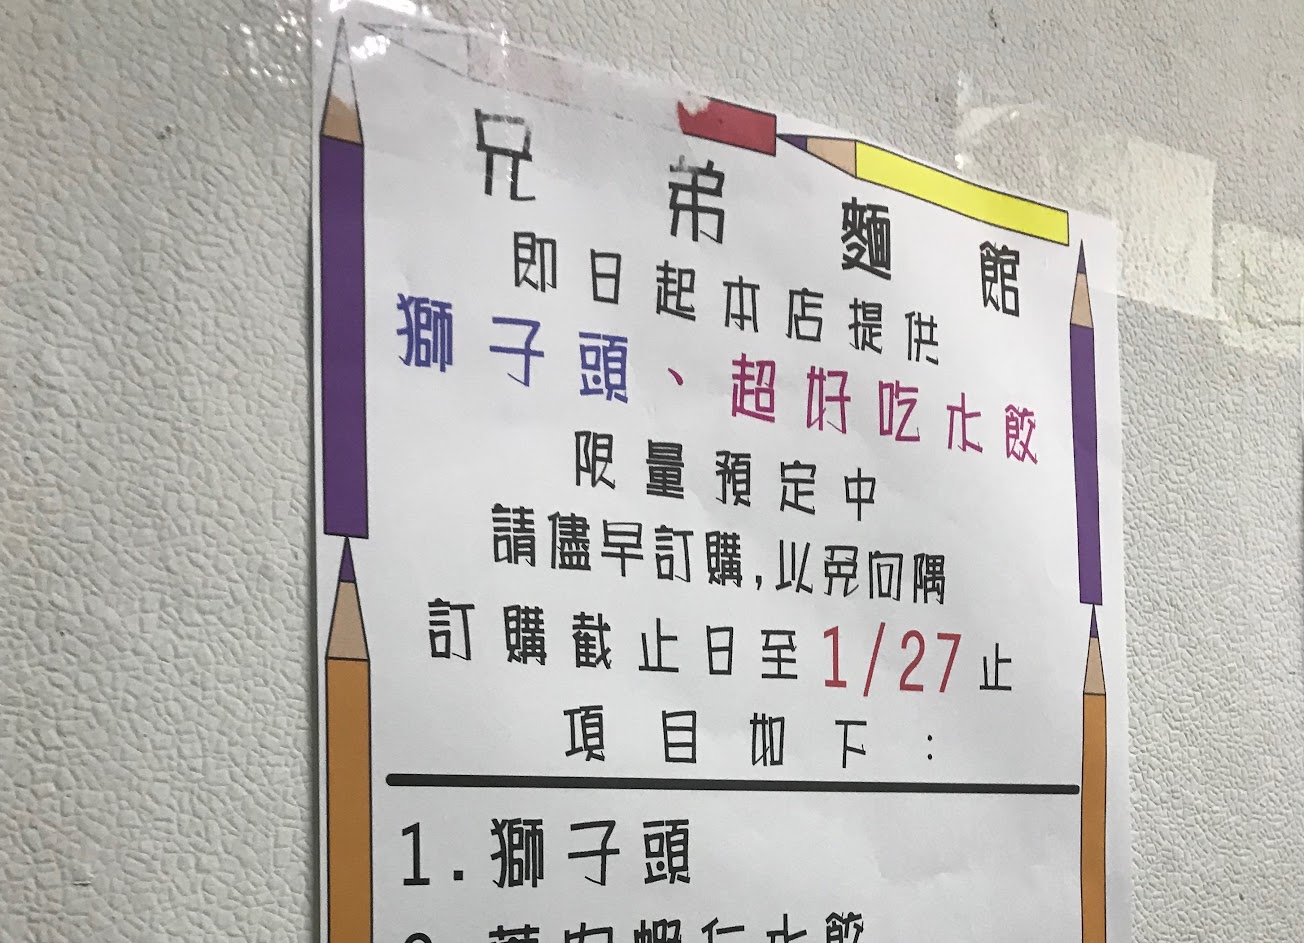 兄弟麵館
即日起本店提供
獅子頭、超好吃水餃
限量預定中
請儘早訂購,以免向隅
訂購截止日至1/27止
項目如下:
1.獅子頭
蝦仁水餃